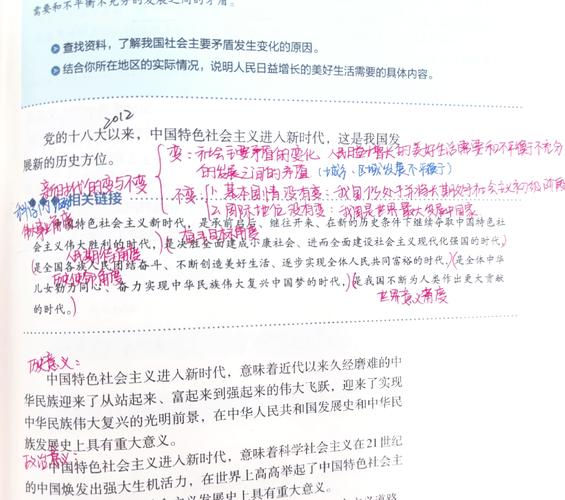 需要和不平衡不充分的发展之间的矛盾。
查找资料，了解我国社会主要矛盾发生变化的原因。
结合你所在地区的实际情况，说明人民日益增长的美好生活需要的具体内容。
2012
党的十八大以来，中国特色社会主义进入新时代，这是我国发
展新的历史方位。
变：社会主要矛盾的变化 人民日益增长的美好生活需要和不平衡不充分
的发展之间的矛盾（城乡、区域发展不平衡）
新时代的变与不变
不变：1.基本国情没有变：我国仍处于并将长期处于社会主义初级阶段
2.国际地位没有变：我国是世界最大发展中国家
科学内涵
相关链接
角度
中国特色社会主义新时代，是承前启后、继往开来、在新的历史条件下继续夺取中国特色社
会主义伟大胜利的时代，是决胜全面建成小康社会、进而全面建设社会主义现代化强国的时代，
奋斗目标角度
人民期待角度
是全国各族人民团结奋斗、不断创造美好生活、逐步实现全体人民共同富裕的时代，是全体中华
历史使命角度
儿女勠力同心、奋力实现中华民族伟大复兴中国梦的时代，是我国不断为人类作出更大贡献
的时代。
世界意义角度
历史意义：
中国特色社会主义进入新时代，意味着近代以来久经磨难的中
华民族迎来了从站起来、富起来到强起来的伟大飞跃，迎来了实现
中华民族伟大复兴的光明前景，在中华人民共和国发展史和中华民
族发展史上具有重大意义。
政治意义：
中国特色社会主义进入新时代，意味着科学社会主义在21世纪
的中国焕发出强大生机活力，在世界上高高举起了中国特色社会主
义发展史上具有重大意义。